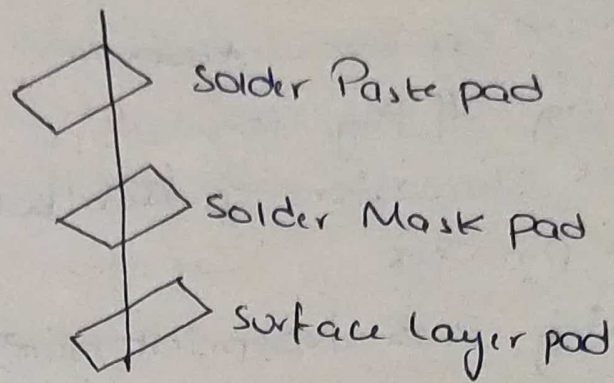 Solder Paste pad
Solder Mask pad
Surface layer pad